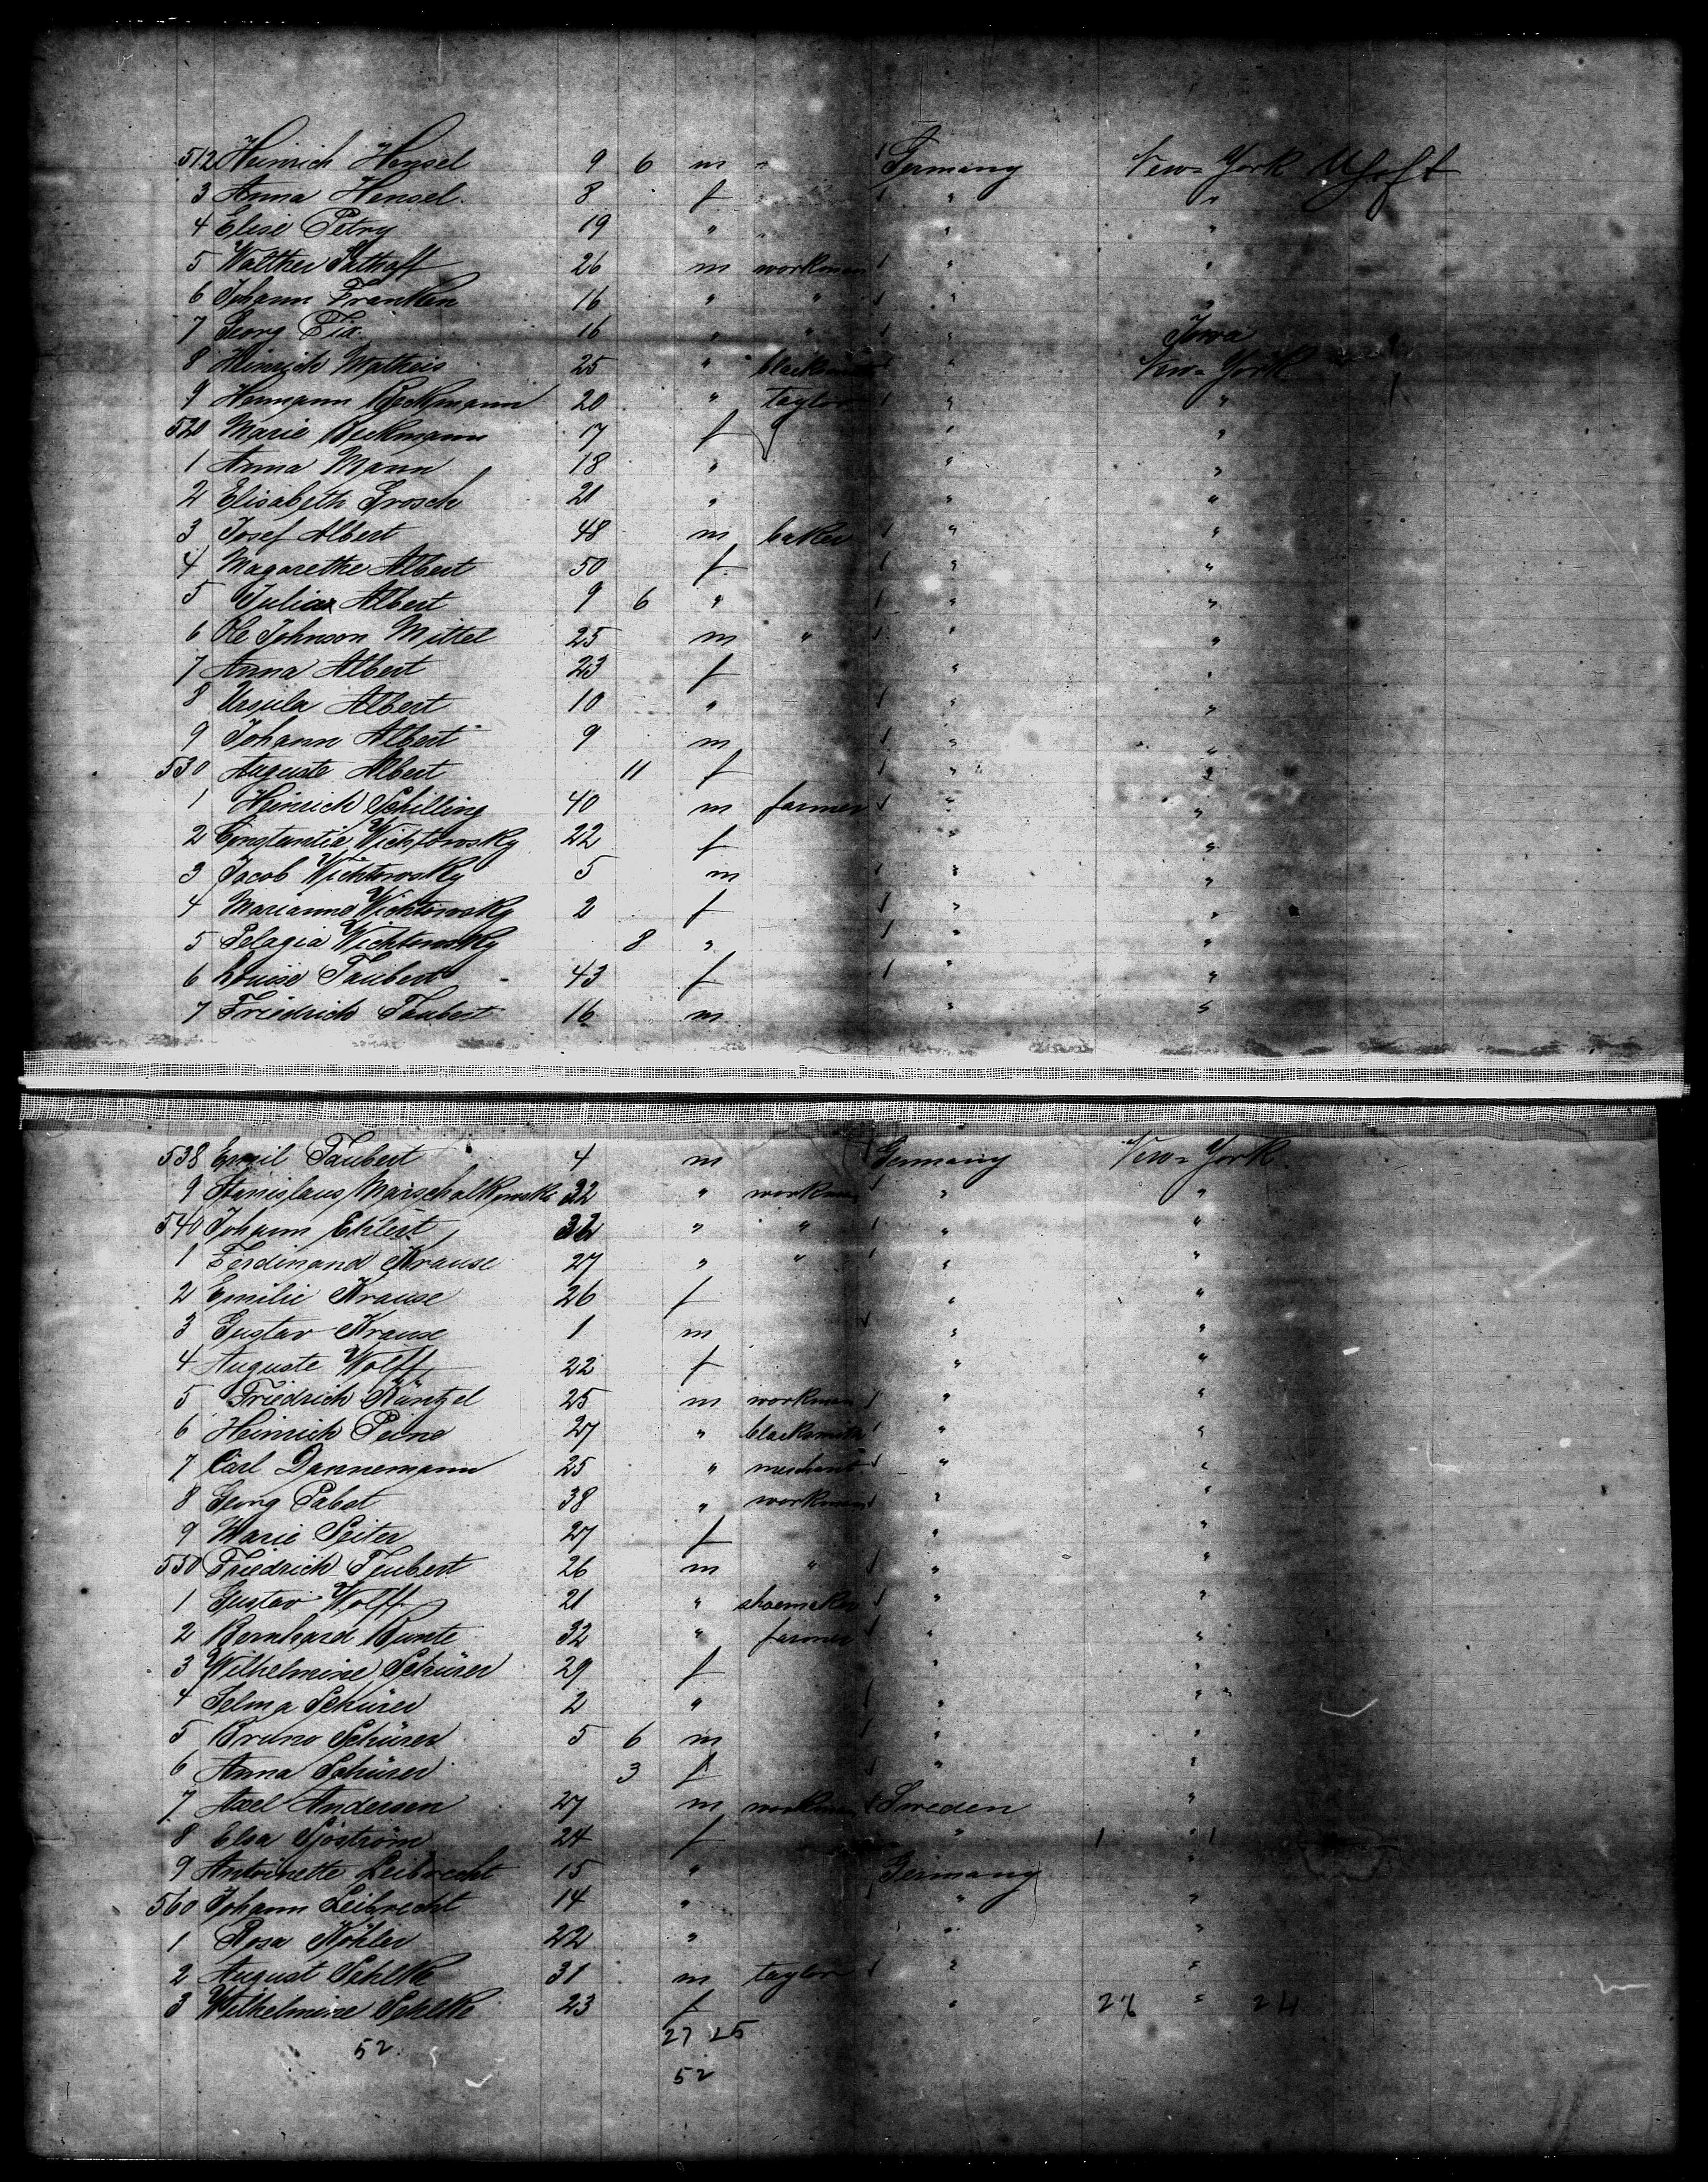 512 Heinrich Hensel 9 6 m " Germany New-York
3 Anna Hensel 8 f " "
4 Elise Petry 19 " " "
5 Walther 26 m workman " "
6 Johann Franken 16 " " " "
7 Georg Fix 16 " " " Iowa
8 Heinrich Matheis 25 " blacksmith " New-York
9 Hermann Beckmann 20 " taylor " "
520 Marie Beckmann 17 f " "
1 Anna Mann 18 " " "
2 Elisabeth Grosch 21 " " "
3 Josef Albert 48 m baker " "
4 Magarethe Albert 50 f " "
5 Julia Albert 9 6 " " "
6 Ole Johnson Mittel 25 m " " "
7 Anna Albert 23 f " "
8 Ursula Albert 10 " " "
9 Johann Albert 9 m " "
530 Auguste Albert 11 f " "
1 Heinrich Schilling 40 m farmer " "
2 Constantia Wichtowsky 22 f " "
3 Jacob Wichtowsky 5 m " "
4 Marianne Wichtowsky 2 f " "
5 Pelagia Wichtowsky 8 " " "
6 Louise Taubert 43 f " "
7 Friedrich Taubert 16 m " "
538 Emil Taubert 4 m Germany New-York
9 Stanislaus Marschalkowski 32 " workman " "
540 Johann Ehlert 32 " " " "
1 Ferdinand Krause 27 " " " "
2 Emilie Krause 26 f " "
3 Gustav Krause 1 m " "
4 Auguste Wolff 22 f " "
5 Friedrich Küntzel 25 m workman " "
6 Heinrich Peine 27 " blacksmith " "
7 Carl Dannemann 25 " merchant " "
8 Georg Pabst 38 " workman " "
9 Marie Seiter 27 f " "
550 Friedrich Teubert 26 m " " "
1 Gustav Wolff 21 " shoemaker " "
2 Bernhard Bunte 32 " farmer " "
3 Wilhelmine Schürer 29 f " "
4 Selma Schürer 2 " " "
5 Bruno Schürer 5 6 m " "
6 Anna Schürer 3 f " "
7 Axel Andersen 27 m workman Sweden "
8 Elsa Sjöström 24 f " 1 " 1
9 Antoinette Leibrecht 15 " Germany "
560 Johann Leibrecht 14 " " "
1 Rosa Köhler 22 " " "
2 August Sehlke 31 m taylor " "
3 Wilhelmine Sehlke 23 f " 26 " 24
27 25
52
52